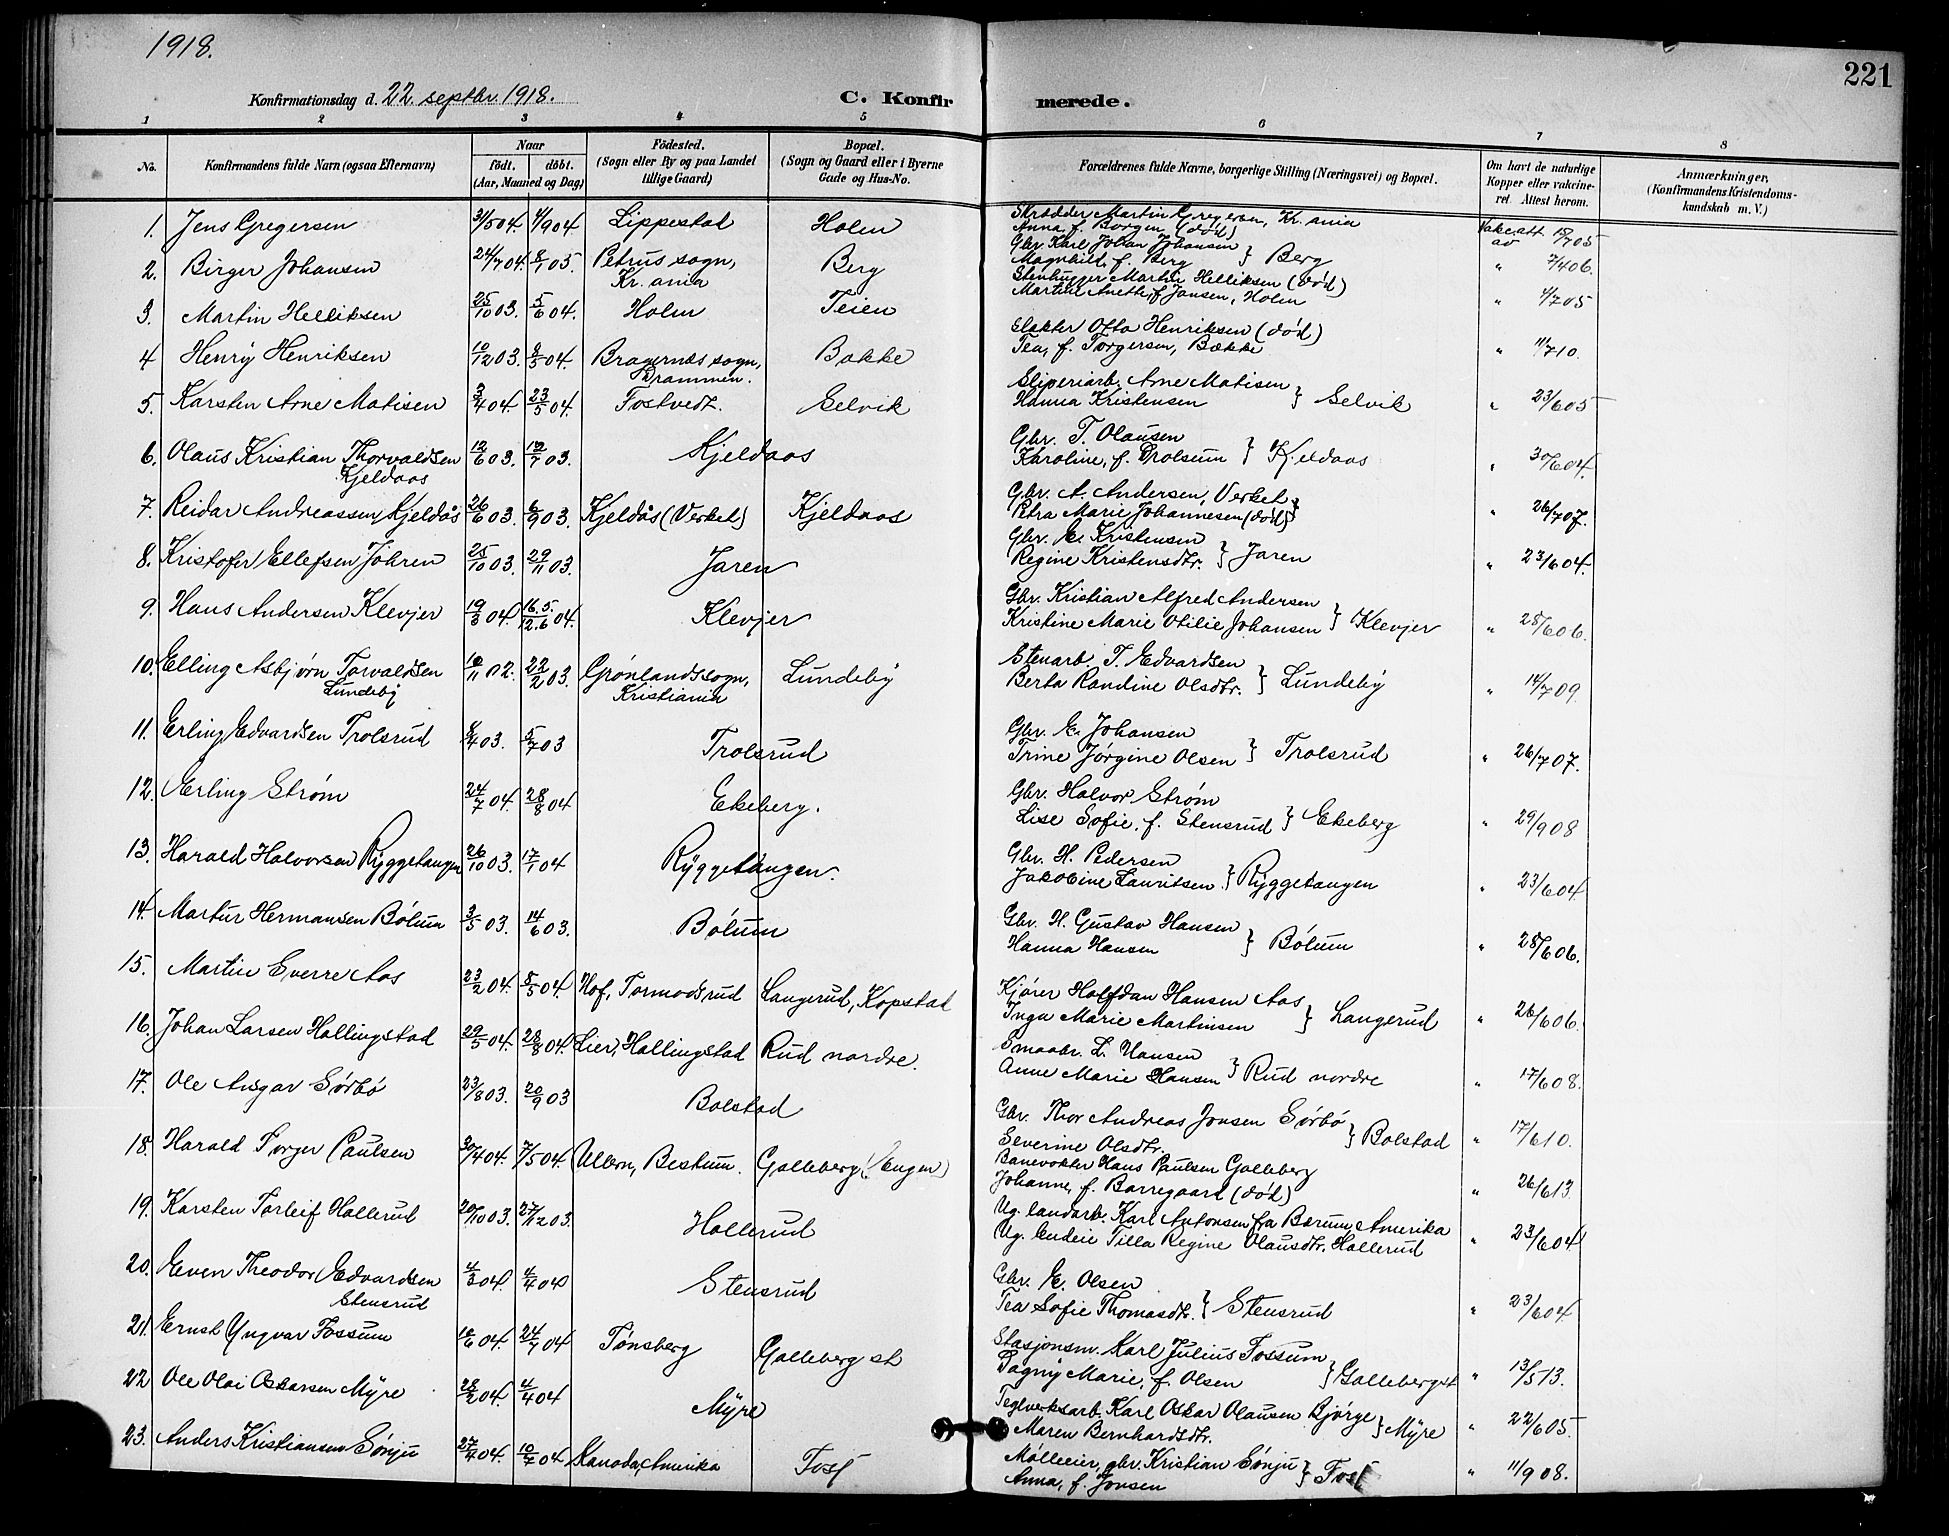 1918.
221
Konfirmationsdag d. 22. septbr. 1918.
C. Konfirmerede.
1 2 3 4 5 6 7 8
No.
Konfirmandens fulde Navn (ogsaa Efternavn)
Naar
født. døbt.
(Aar, Maaned og Dag)
Födested.
(Sogn eller By og paa Landet tillige Gaard)
Bopæl.
(Sogn og Gaard eller i Byerne Gade og Hus-No.
Forældrenes fulde Navne, borgerlige Stilling (Næringsvei) og Bopæl.
Om havt de naturlige Kopper eller vakcineret. Attest herom.
Anmærkninger,
(Konfirmandens Kristendomskundskab m. V.)
1. Jens Gregersen 31/5 04. 4/9 04. Lippestad Holm Skrædder Martin Gregersen, Kr.ania
Anna, f. Borgen (død) Vakc.att. av 15/7 05
2. Birger Johansen 24/7 04. 8/1 05. Petrus sogn, Kr.ania Berg Gbr. Karl Johan Johansen
Magnhild, f. Berg } Berg " 7/4 06.
3. Martin Helliksen 25/10 03. 5/6 04. Holm Teien Stenhugger Martin Helliksen (død)
Martine Anethe, f. Jansen, Holm " 4/7 05
4 Henry Henriksen 10/12 03. 8/5 04. Bragernes sogn, Drammen. Bakke Slakter Otto Henriksen (død)
Tea, f. Torgersen, Bakke " 11/7 10.
5. Karsten Arne Matisen 3/4 04. 23/5 04. Tostvedt. Selvik Sliperiarb. Arne Matisen
Hanna Kristensen } Selvik " 23/6 05
6. Olaus Kristian Thorvaldsen Kjeldaas 12/6 03. 12/7 03. Kjeldaas Gbr. T. Olausen
Karoline, f. Trolsrum } Kjeldaas " 30/6 04.
7. Reidar Andreassen Kjeldås 26/6 03. 6/9 03. Kjeldås (Verket) Kjeldaas Gbr. A. Andersen, Verket
Petra Marie Johannesen (død) } " 26/7 07.
8. Kristofer Ellefsen Jahren 25/10 03. 29/11 03. Jaren Gbr. E. Kristensen
Regine Kristensdtr. } Jaren " 23/6 04.
9. Hans Andersen Klevjer 19/3 04. 16.5./12.6 04. Klevjer Gbr. Kristian Alfred Andersen
Kristine Marie Otilie Johansen } Klevjer " 28/6 06.
10. Elling Asbjørn Torvaldsen Lundeby 10/11 02. 22/2 03. Grønlands sogn, Kristiania Lundeby Stenarb. T. Edvardsen
Berta Randine Olsdtr. } Lundeby " 14/7 09.
11. Erling Edvardsen Trolsrud 8/4 03. 5/7 03 Trolsrud Gbr. E. Johansen
Trine Jørgine Olsen } Trolsrud " 26/7 07.
12. Erling Strøm 24/7 04. 28/8 04 Ekeberg. Gbr. Halvor Strøm
Lise Sofie, f. Stensrud } Ekeberg " 29/9 08
13. Harald Halvorsen Ryggetangen 26/10 03. 17/1 04 Ryggetangen. Gbr. H. Pedersen
Jakobine Lauritsen } Ryggetangen " 23/6 04
14. Martin Hermansen Bølum 3/5 03. 14/6 03. Bølum Gbr. H. Gustav Hansen
Hanna Hansen } Bølum " 28/6 06.
15. Martin Sverre Aas 23/2 04. 8/5 04. Hof, Tormodsrud Langerud, Kopstad Kjører Halfdan Hansen Aas
Inga Marie Martinsen } Langerud " 26/6 06.
16. Johan Larsen Hallingstad 29/5 04. 28/8 04. Lier, Hallingstad Rud nordre. Smaabr. L. Hansen
Anne Marie Hansen } Rud nordre " 17/6 08.
17. Ole Ansgar Sørbø 23/8 03. 20/9 03 Bolstad Gbr. Thor Andreas Jonsen Sørbø
Severine Olsdtr. } Bolstad " 17/6 10.
18. Harald Torger Paulsen 30/4 04. 7/5 04. Ullern, Bestum. Galleberg (Engen) Banevokter Hans Paulsen Galleberg
Johanne, f. Borregaard (død) " 26/6 13.
19. Karsten Torleif Hallerud 20/10 03. 27/12 03. Hallerud Ug. landarb. Karl Antonsen fra Bærum, Amerika
Ug. budeie Tilla Regine Olausdtr. Hallerud " 23/6 04
20. Even Theodor Edvardsen Stensrud 4/3 04. 4/4 04 Stensrud Gbr. E. Olsen
Tea Sofie Thomasdtr. } Stensrud " 23/6 04.
21. Ernst Yngvar Fossum 10/6 04. 24/7 04 Tønsberg Galleberg st Stasjonsm. Karl Julius Fossum
Dagny Marie, f. Olsen } Galleberg st " 13/5 13.
22 Ole Olai Oskarsen Myre 28/2 04. 4/4 04 Myre Teglverksarb. Karl Oskar Olausen Bjørge
Maren Bernhardsdtr. } Myre " 22/6 05.
23. Anders Kristiansen Sønju 27/4 04. 10/7 04 Kanada, Amerika Foss Mølleeier, gbr. Kristian Sønju
Anna, f. Jonsen } Foss " 11/9 08.